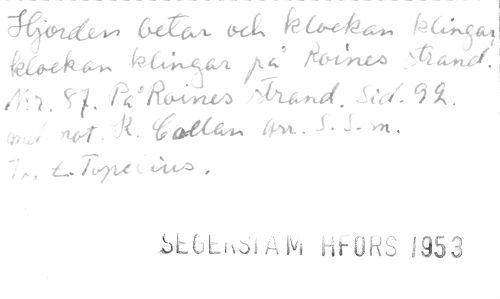 Hjorden betar och klockan klingar,
klockan klingar på Roines strand.
N:r. 87. På Roines strand. Sid. 92.
med not. K. Collan arr. S. S-m.
Z. Topelius.
SEGERSTAM HFORS 1953